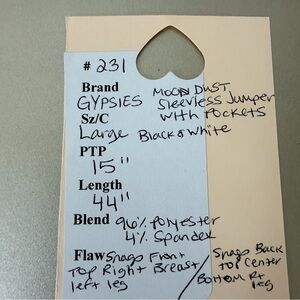 # 231
Brand MOON DUST
GYPSIES Sleevless Jumper
Sz/C with Pockets
Large Black & White
PTP
15"
Length
44"
Blend 96% Polyester
4% Spandex
Flaw Snags Front / Snags Back
Top Right Breast / Top Center
left leg / Bottom Rt
leg